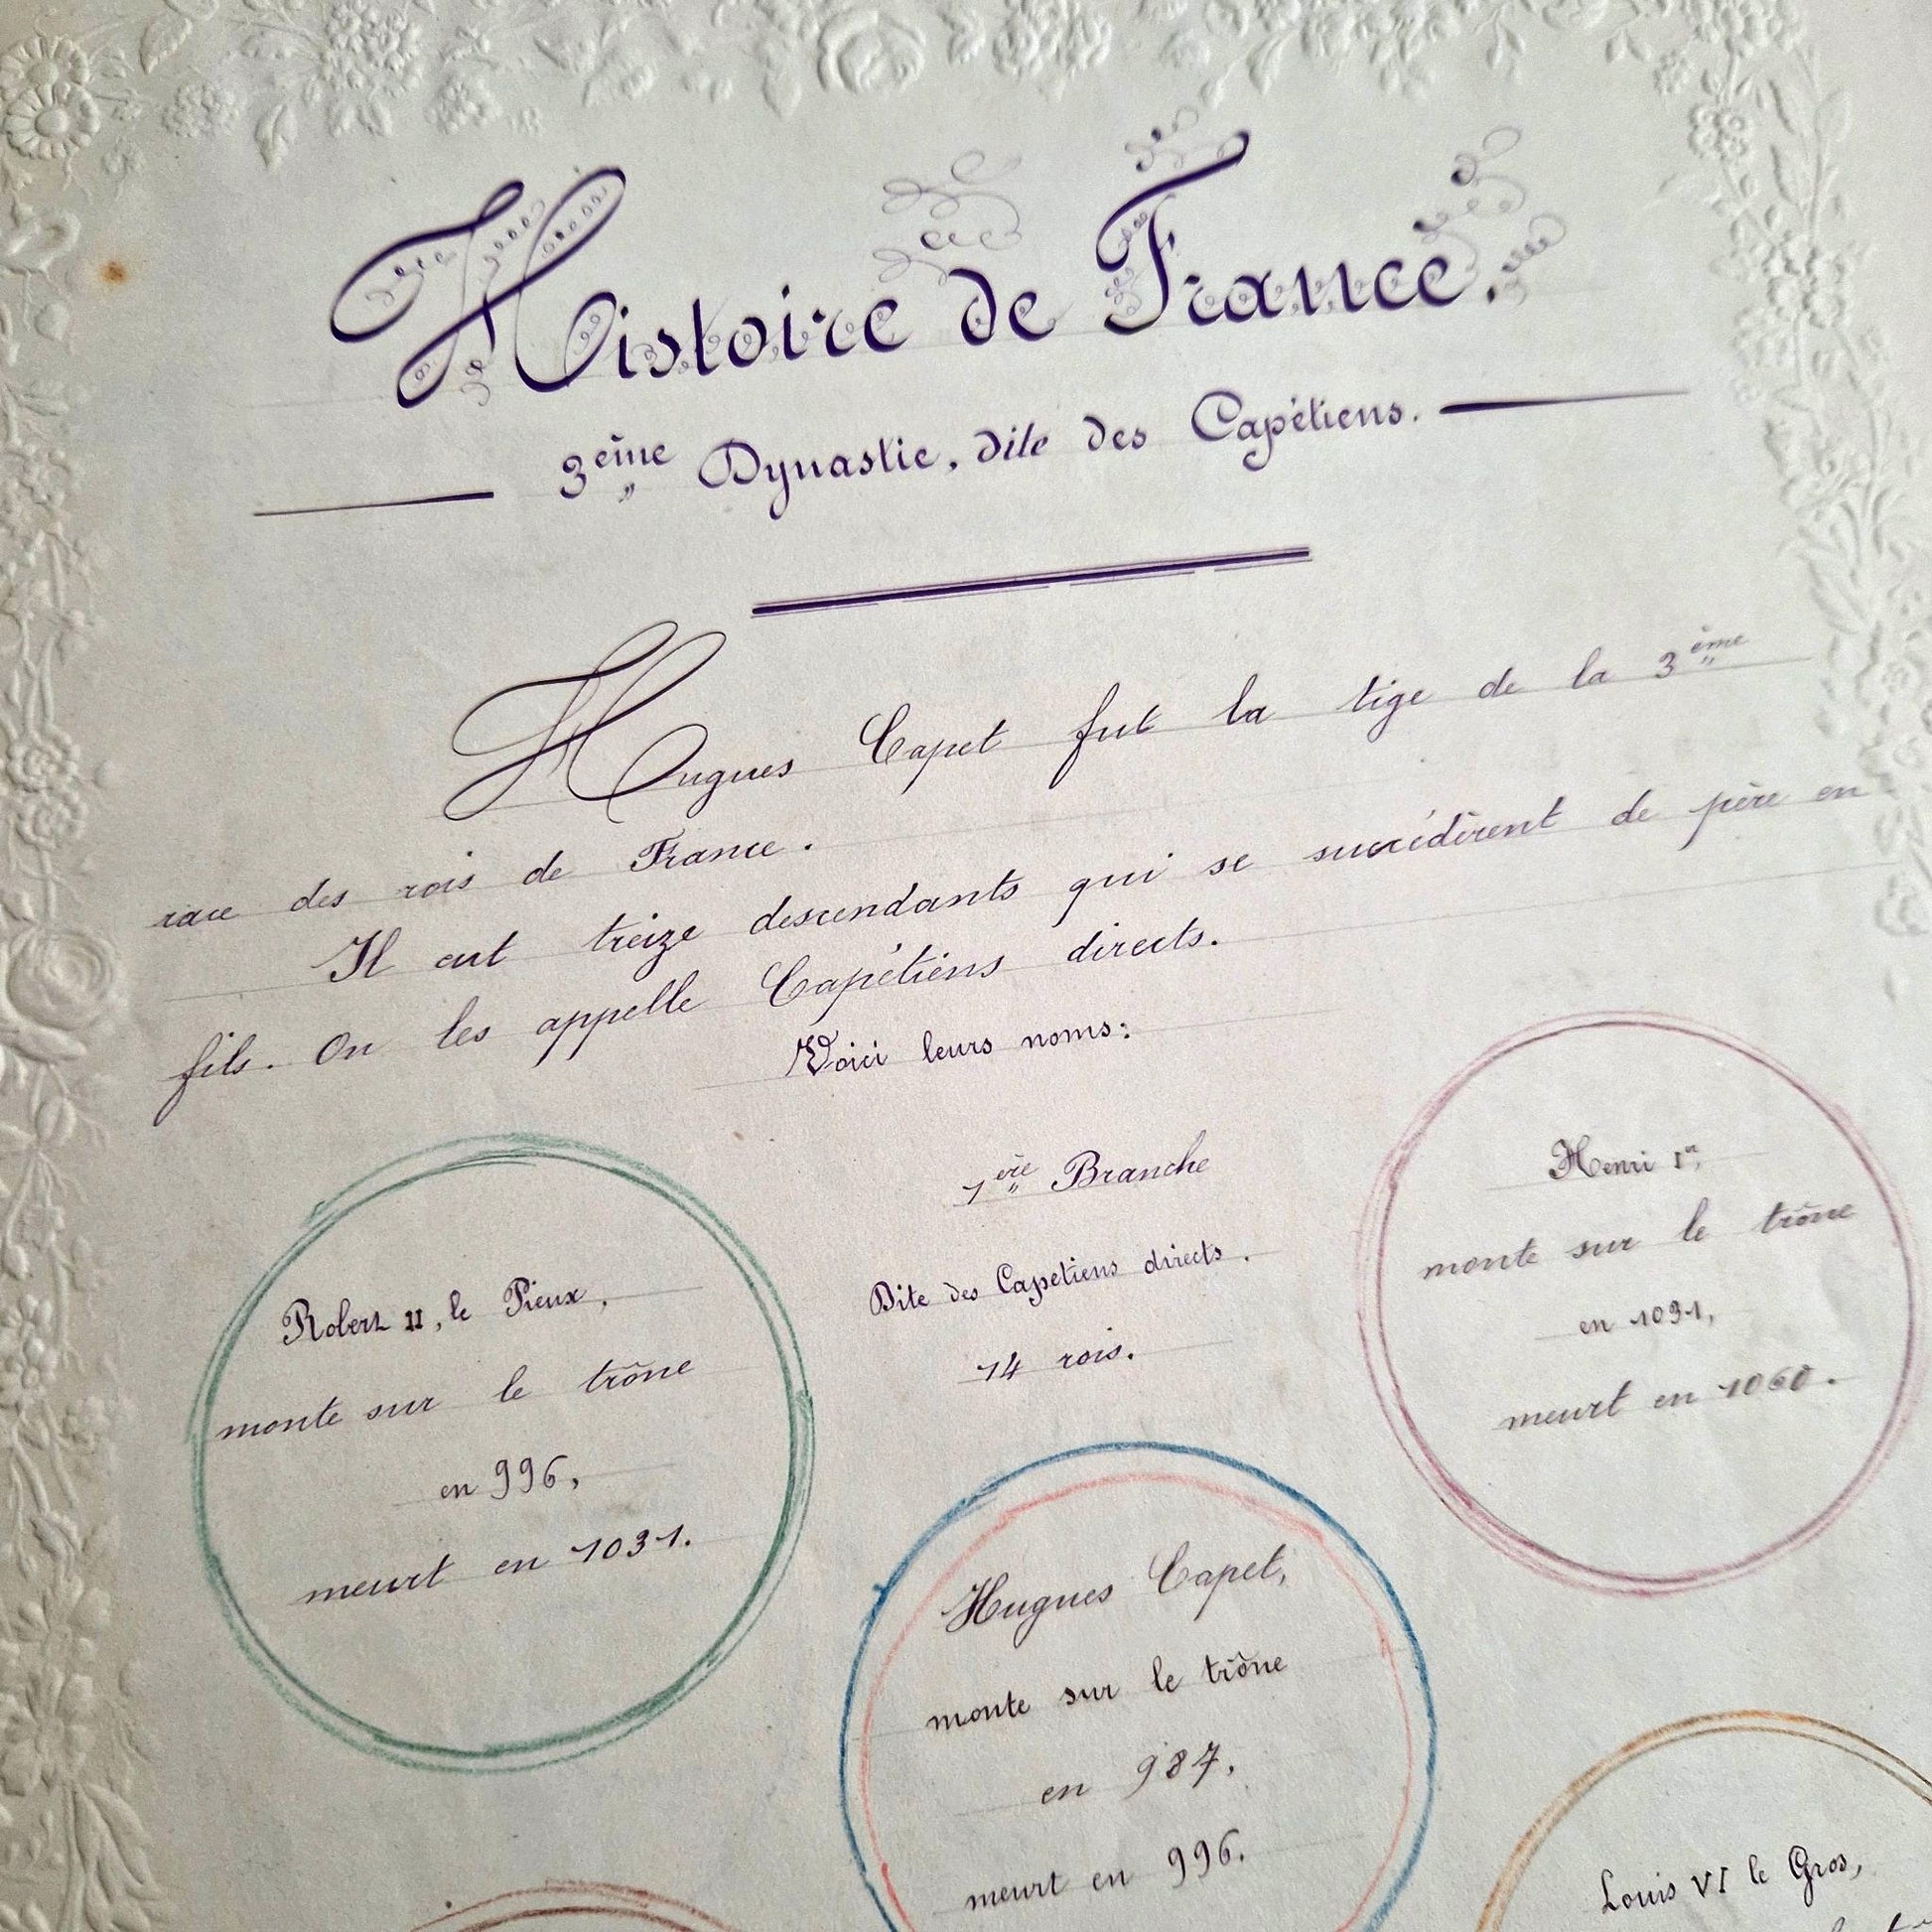 Histoire de France.
3ème Dynastie, dite des Capétiens.
Hugues Capet fut la tige de la 3ème
race des rois de France.
Il eut treize descendants qui se succédèrent de père en
fils. On les appelle Capétiens directs.
Voici leurs noms:
1ère Branche
Dite des Capétiens directs.
14 rois.
Robert II, le Pieux,
monte sur le trône
en 996,
meurt en 1031.
Henri Ier,
monte sur le trône
en 1031,
meurt en 1060.
Hugues Capet,
monte sur le trône
en 987,
meurt en 996.
Louis VI le Gros,